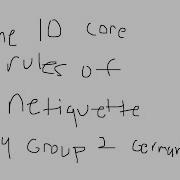 he 10 core
rules of
netiquette
y Group 2 German